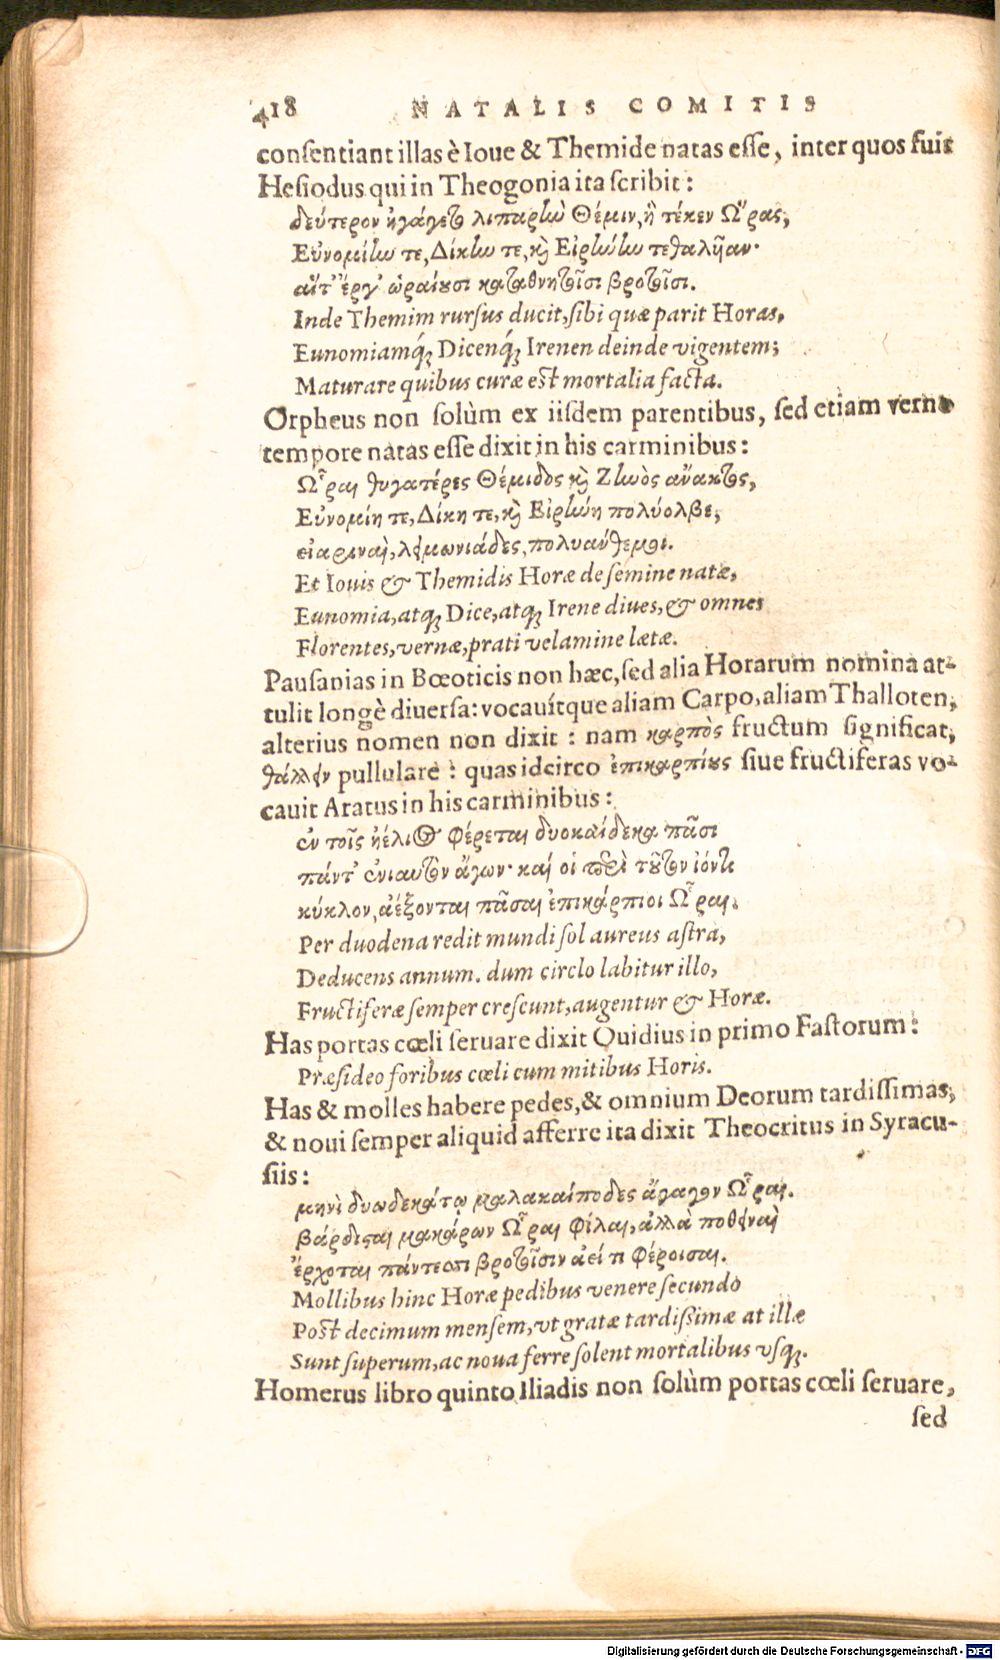 418 NATALIS COMITIS
consentiant illas è Ioue & Themide natas esse, inter quos fuit
Hesiodus qui in Theogonia ita scribit:
δεύτερον ἠγάγετο λιπαρὴν Θέμιν, ἣ τέκεν Ὥρας,
Εὐνομίην τε, Δίκην τε, καὶ Εἰρήνην τεθαλῆαν·
αἵτ' ἔργ' ὡραίουσι καταθνητοῖσι βροτοῖσι.
Inde Themim rursus ducit, sibi quæ parit Horas,
Eunomiamq́; Dicenq́; Irenen deinde vigentem;
Maturare quibus curæ est mortalia facta.
Orpheus non solùm ex iisdem parentibus, sed etiam verno
tempore natas esse dixit in his carminibus:
Ὧραι θυγατέρες Θέμιδος καὶ Ζηνὸς ἄνακτος,
Εὐνομίη τε, Δίκη τε, καὶ Εἰρήνη πολύολβε,
εἰαριναὶ, λειμωνιάδες, πολυάνθεμοι.
Et Iouis & Themidis Horæ de semine natæ,
Eunomia, atq; Dice, atq; Irene diues, & omnes
Florentes, vernæ, prati velamine lætæ.
Pausanias in Bœoticis non hæc, sed alia Horarum nomina at-
tulit longè diuersa: vocauítque aliam Carpo, aliam Thalloten,
alterius nomen non dixit: nam καρπὸς fructum significat,
θάλλειν pullulare: quas idcirco ἐπικαρπίους siue fructiferas vo-
cauit Aratus in his carminibus:
ἐν τοῖς ἠέλιος φέρεται δυοκαίδεκα πᾶσι
πάντ' ἐνιαυτὸν ἄγων· καί οἱ περὶ τοῦτον ἰόντι
κύκλον, ἀέξονται πᾶσαι ἐπικάρπιοι Ὧραι.
Per duodena redit mundi sol aureus astra,
Deducens annum. dum circlo labitur illo,
Fructiferæ semper crescunt, augentur & Horæ.
Has portas cœli seruare dixit Ouidius in primo Fastorum:
Præsideo foribus cœli cum mitibus Horis.
Has & molles habere pedes, & omnium Deorum tardissimas,
& noui semper aliquid afferre ita dixit Theocritus in Syracu-
siis:
μηνὶ δυωδεκάτῳ μαλακαίποδες ἄγαγον Ὧραι.
βάρδισαι μακάρων Ὧραι φίλαι, ἀλλὰ ποθειναὶ
ἔρχοται πάντεσσι βροτοῖσιν ἀεί τι φέροισαι.
Mollibus hinc Horæ pedibus venere secundo
Post decimum mensem, vt gratæ tardissimæ at illæ
Sunt superum, ac noua ferre solent mortalibus vsq;.
Homerus libro quinto Iliadis non solùm portas cœli seruare,
sed
Digitalisierung gefördert durch die Deutsche Forschungsgemeinschaft - DFG